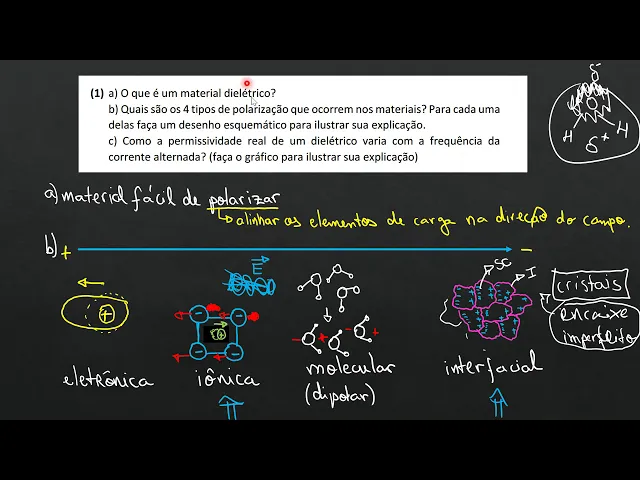 (1) a) O que é um material dielétrico?
b) Quais são os 4 tipos de polarização que ocorrem nos materiais? Para cada uma
delas faça um desenho esquemático para ilustrar sua explicação.
c) Como a permissividade real de um dielétrico varia com a frequência da
corrente alternada? (faça o gráfico para ilustrar sua explicação)
δ-
O
H H
δ+
a) material fácil de polarizar
alinhar os elementos de carga na direção do campo.
b) + -
E
SC
I
cristais
encaixe
imperfeito
eletrônica
iônica
molecular
(dipolar)
interfacial